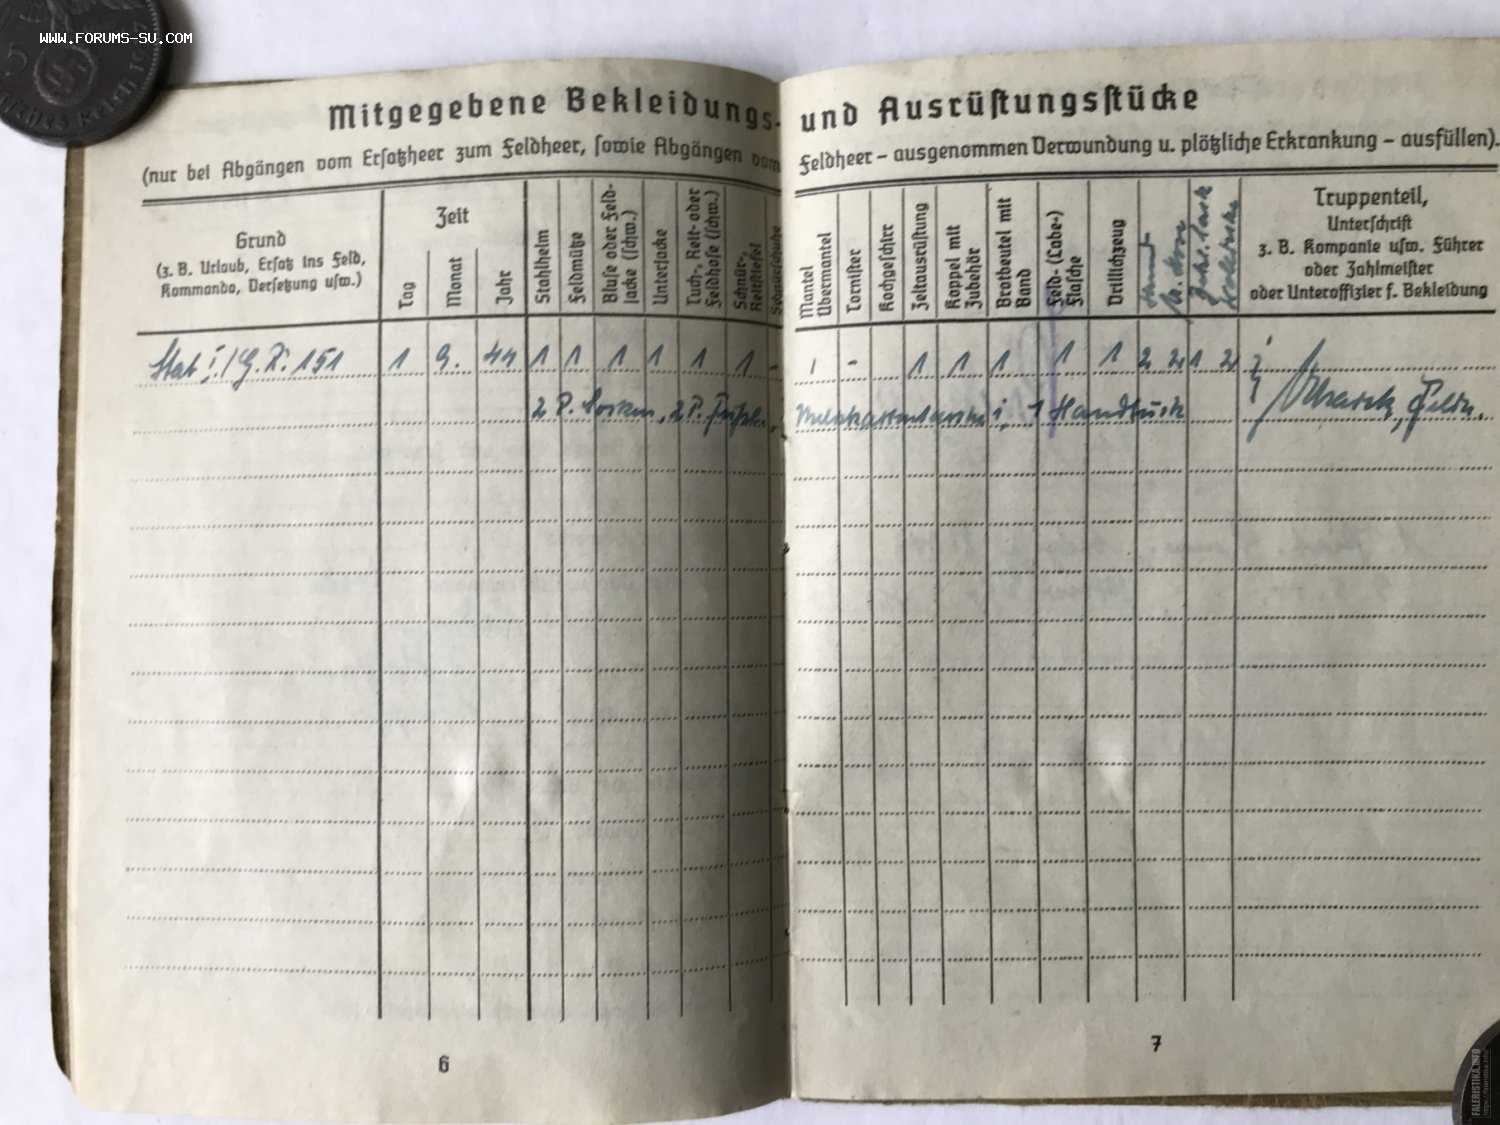 WWW.FORUMS-SU.COM
Mitgegebene Bekleidungs- und Ausrüstungsstücke
(nur bei Abgängen vom Ersatzheer zum Feldheer, sowie Abgängen vom Feldheer – ausgenommen Verwundung u. plötzliche Erkrankung – ausfüllen).
Grund
(z. B. Urlaub, Ersatz ins Feld,
Kommando, Versetzung usw.)
Zeit
Tag
Monat
Jahr
Stahlhelm
Feldmütze
Bluse oder Feld-
jacke (schw.)
Unterjacke
Tuch-, Reit- oder
Feldhose (schw.)
Schnür-,
Reitstiefel
Schnürschuhe
Mantel
Übermantel
Tornister
Kochgeschirr
Zeltausrüstung
Koppel mit
Zubehör
Brotbeutel mit
Band
Feld- (Labe-)
Flasche
Drillichzeug
Hemd
Truppenteil,
Unterschrift
z. B. Kompanie usw. Führer
oder Zahlmeister
oder Unteroffizier f. Bekleidung
Stab I./G.R. 151 1 9. 44 1 1 1 1 1 1 - 1 - 1 1 1 1 1 2 2 1 2
2 P. Socken, 2 P. 1 Handtuch Feldw.
6
7
FALERISTIKA.INFO